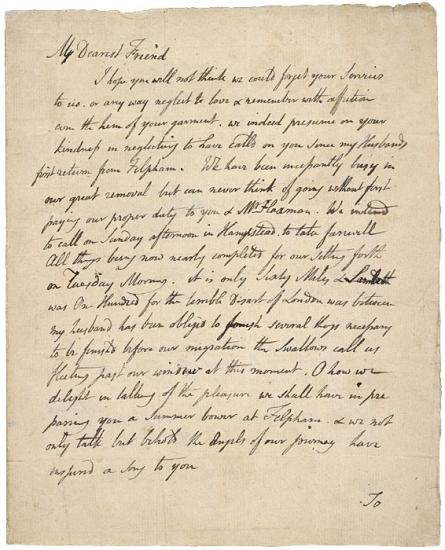 My Dearest Friend
I hope you will not think we could forget your Services
to us. or any way neglect to love & remember with affection
even the hem of your garment. we indeed presume on your
kindness in neglecting to have calld on you Since my Husbands
first return from Felpham. We have been incessantly busy in
our great removal but can never think of going without first
paying our proper duty to you & Mr Flaxman. We intend
to call on Sunday afternoon in Hampstead. to take farewell
All things being now nearly completed for our Setting forth
on Tuesday Morning. it is only Sixty Miles & Lambeth
was One Hundred for the terrible Desart of London was between
my husband has been obliged to finish Several things necessary
to be finishd before our migration the Swallows call us
fleeting past our window at this moment. O how we
delight in talking of the pleasure we shall have in pre
paring you a Summer bower at Felpham. & we not
only talk but behold the Angels of our journey have
inspired a song to you
To